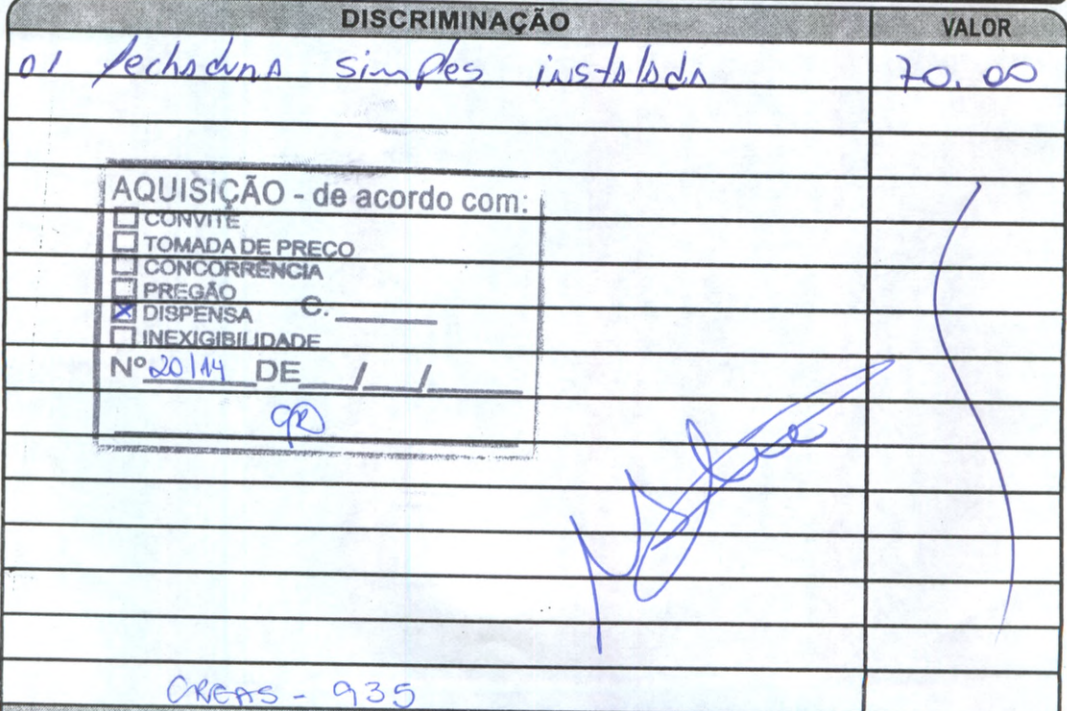 DISCRIMINAÇÃO VALOR
01 fechadura simples instalada 70.00
AQUISIÇÃO - de acordo com:
CONVITE
TOMADA DE PREÇO
CONCORRÊNCIA
PREGÃO
DISPENSA C.
INEXIGIBILIDADE
Nº 20/14 DE / /
CREAS - 935